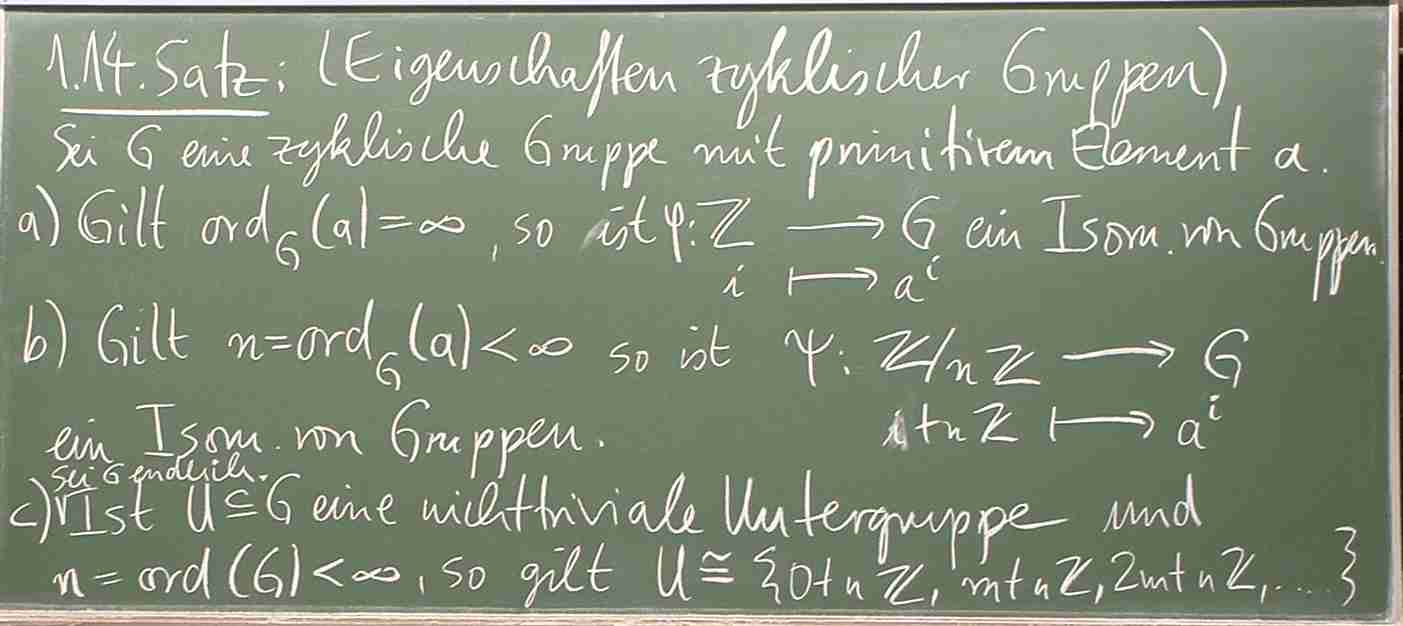 1.14. Satz: (Eigenschaften zyklischer Gruppen)
Sei G eine zyklische Gruppe mit primitivem Element a.
a) Gilt ord_G(a)=∞, so ist φ: ℤ ⟶ G ein Isom. von Gruppen.
i ⟼ a^i
b) Gilt n=ord_G(a)<∞ so ist ψ: ℤ/nℤ ⟶ G
i+nℤ ⟼ a^i
ein Isom. von Gruppen.
Sei G endlich.
c) Ist U⊆G eine nichttriviale Untergruppe und
n=ord(G)<∞, so gilt U≅{0+nℤ, m+nℤ, 2m+nℤ,....}